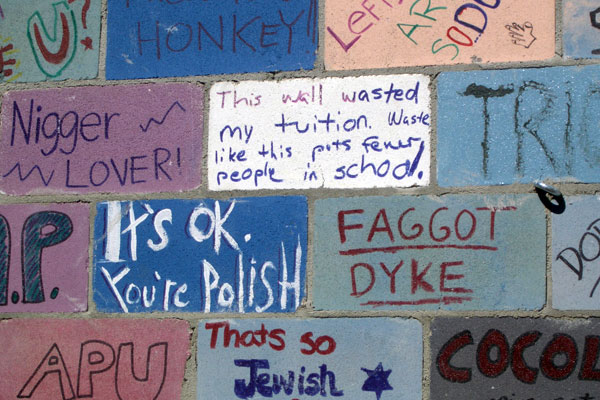 U?
HONKEY!
Nigger
LOVER!
This wall wasted
my tuition. Waste
like this puts fewer
people in school!
TRI
.P.
It's OK.
You're POLISH
FAGGOT
DYKE
APU
Thats so
Jewish
COCO